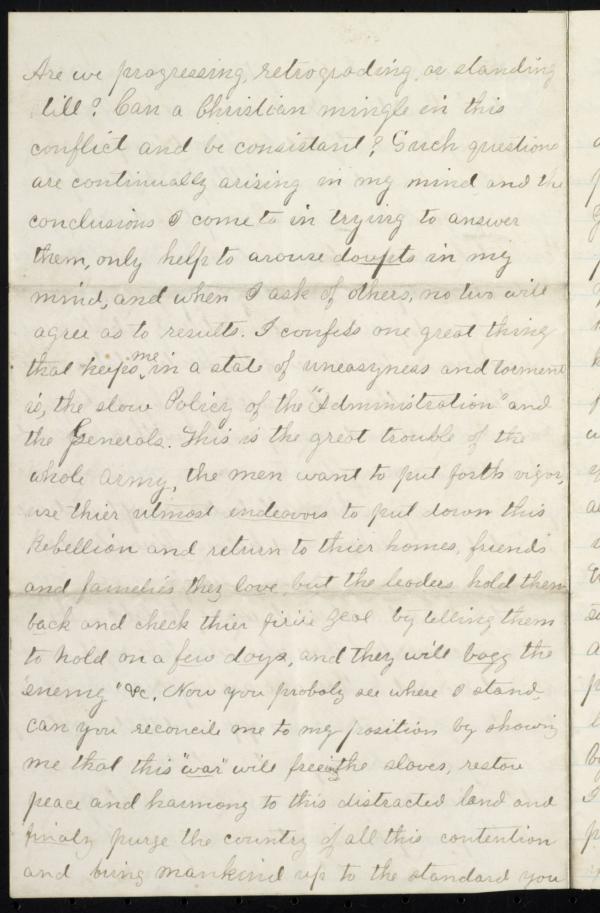 Are we progressing, retrograding, or standing
till? Can a Christian mingle in this
conflict and be consistant? Such questions
are continually arising in my mind and the
conclusions I come to in trying to answer
them, only help to arouse doupts in my
mind, and when I ask of others, no two will
agree as to results. I confess one great thing
that keeps me in a state of uneasyness and torment
is, the slow Policy of the "Administration" and
the Generals. This is the great trouble of the
whole army, the men want to put forth vigor,
use thier utmost endeavors to put down this
Rebellion and return to thier homes, friends
and families they love, but the leaders hold them
back and check thier zeal by telling them
to hold on a few days, and they will bagg the
enemy" &c. Now you probaly see where I stand,
can you reconcile me to my position by showing
me that this "war" will freeing the slaves, restore
peace and harmony to this distracted land and
finaly purge the country of all this contention
and bring mankind up to the standard you